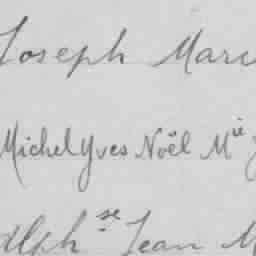 Joseph Marc
Michel Yves Noël Mie
Alphse Jean M